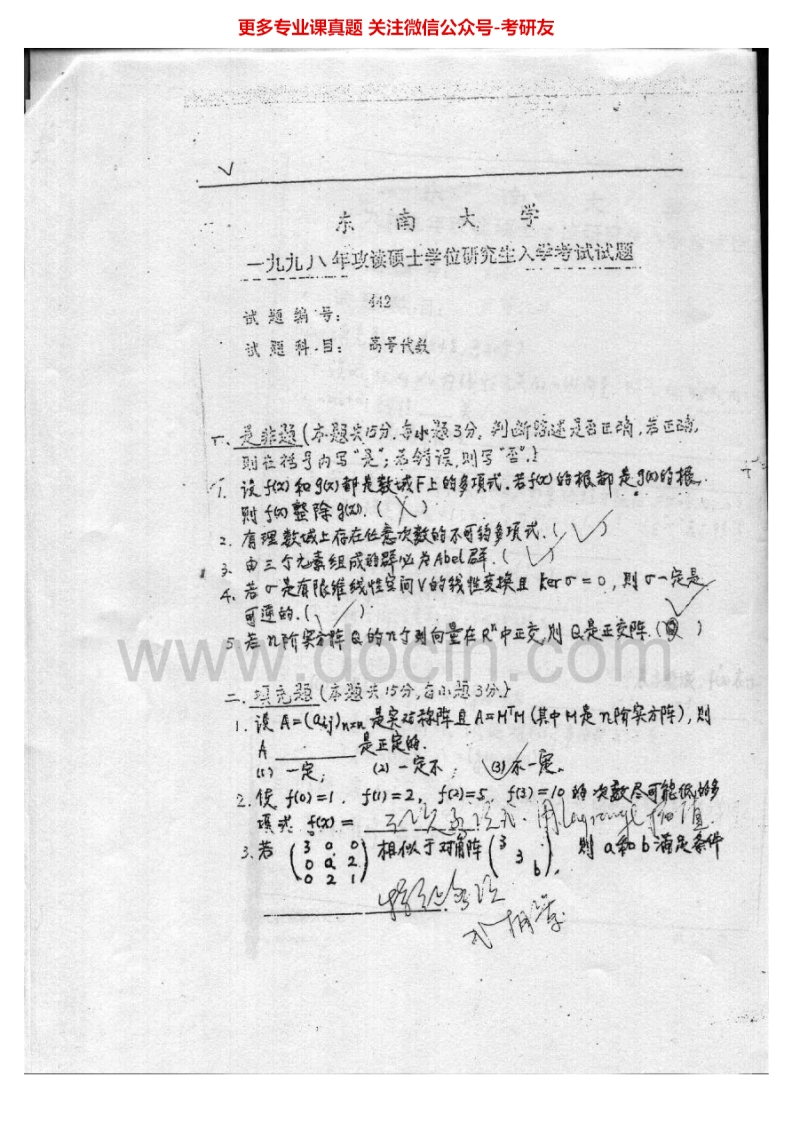 更多专业课真题 关注微信公众号-考研友
东 南 大 学
一九九八年攻读硕士学位研究生入学考试试题
试题编号: 442
试题科目: 高等代数
一、是非题(本题共15分,每小题3分。判断结述是否正确,若正确,
则在括号内写"是";若错误,则写"否".)
1. 设f(x)和g(x)都是数域F上的多项式.若f(x)的根都是g(x)的根,
则f(x)整除g(x). ( ╳ )
2. 有理数域上存在任意次数的不可约多项式. ( ✓ )
3. 由三个元素组成的群必为Abel群. ( ✓ )
4. 若σ是有限维线性空间V的线性变换且 Kerσ=0, 则σ一定是
可逆的. ( ✓ )
5. 若n阶实方阵Q的n个列向量在Rⁿ中正交,则Q是正交阵. ( )
www.docin.com
二.填充题(本题共15分,每小题3分.)
1. 设A=(aij)n×n是实对称阵且A=MᵀM(其中M是n阶实方阵),则
A ________ 是正定的.
(1) 一定; (2) 一定不; (3) 不一定.
2. 使 f(0)=1, f(1)=2, f(2)=5, f(3)=10 的次数尽可能低的多
项式 f(x)= 三次多项式. 用Lagrange插值
3. 若 (3 0 0 相似于对角阵 (3 则a和b满足条件
0 a 2 3
0 2 1) b),
特征多项
式相等